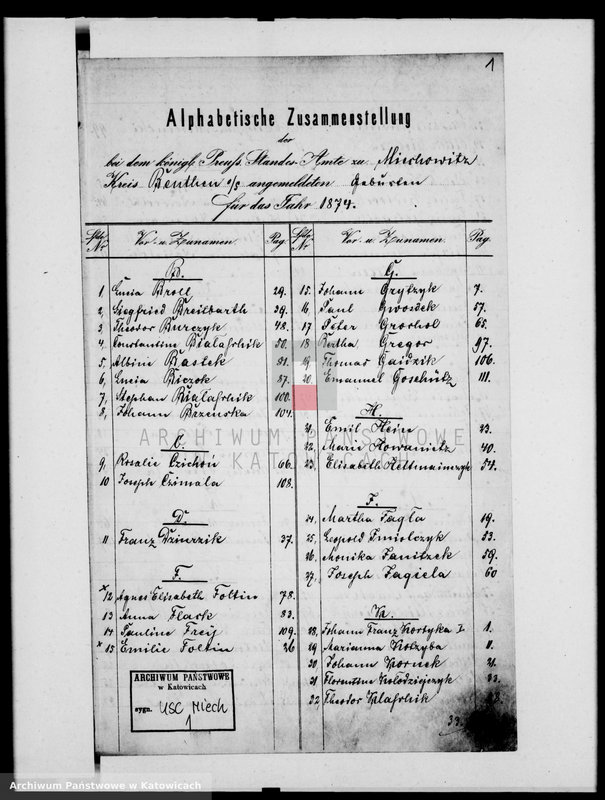 1
Alphabetische Zusammenstellung
der
bei dem königl. Preuß. Standes-Amte zu Miechowitz
Kreis Beuthen o/s angemeldeten Geburten
für das Jahr 1874.
Lfde Nr. Vor- u. Zunamen. Pag.
B.
1, Lucia Broll 29.
2, Siegfried Breilbarth 39.
3, Theodor Burczyk 48.
4, Constantine Bialaschik 50.
5, Albine Bastek 81.
6, Lucia Biczok 87.
7, Stephan Bialaschik 100.
8, Johann Brzenska 104.
C.
9, Rosalie Czichoń 66.
10 Joseph Czimala 108.
D.
11 Franz Dzierzik 37.
F.
x 12 Agnes Elisabeth Foltin 78.
13 Anna Flack 83.
14 Pauline Frey 109.
x 15 Emilie Foltin 26
Lfde Nr. Vor- u. Zunamen. Pag.
G.
15. Johann Gryszyk 7.
16, Paul Gwosdek 57.
17 Peter Groehol 65.
18 Bertha Gregor 97.
19 Thomas Gaidzik 106.
20. Emanuel Goschütz 111.
H.
21, Emil Hein 23.
22, Marie Howanitz 40.
23. Elisabeth 54.
J.
24, Martha Jagla 19.
25, Leopold Jmiolczyk 53.
26. Monika Janitzek 59.
27, Joseph Jagiela 60
K.
28, Johann Franz Kortyka I. 1.
29 Marianna Kotzyba
30 Johann Kornek 21.
31 Florentine Kolodziejczyk
32 Theodor Klaschik
ARCHIWUM PAŃSTWOWE
KATOWICACH
ARCHIWUM PAŃSTWOWE
w Katowicach
sygn. USC Miech
1
Archiwum Państwowe w Katowicach